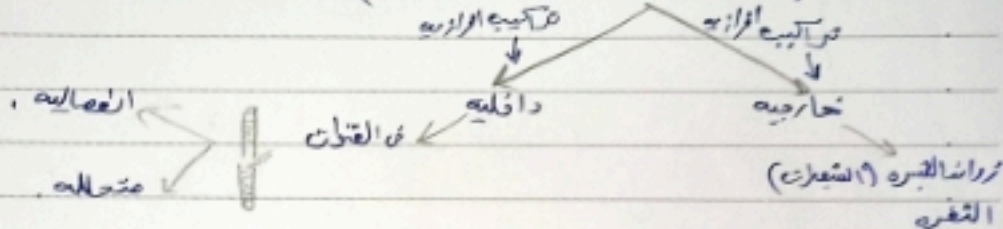 تراكيب افرازيه
تراكيب افرازيه
خارجيه
داخليه
فى القنوات
انفصاليه
متحلله
زوائد البشره (الشعيرات)
الثغره